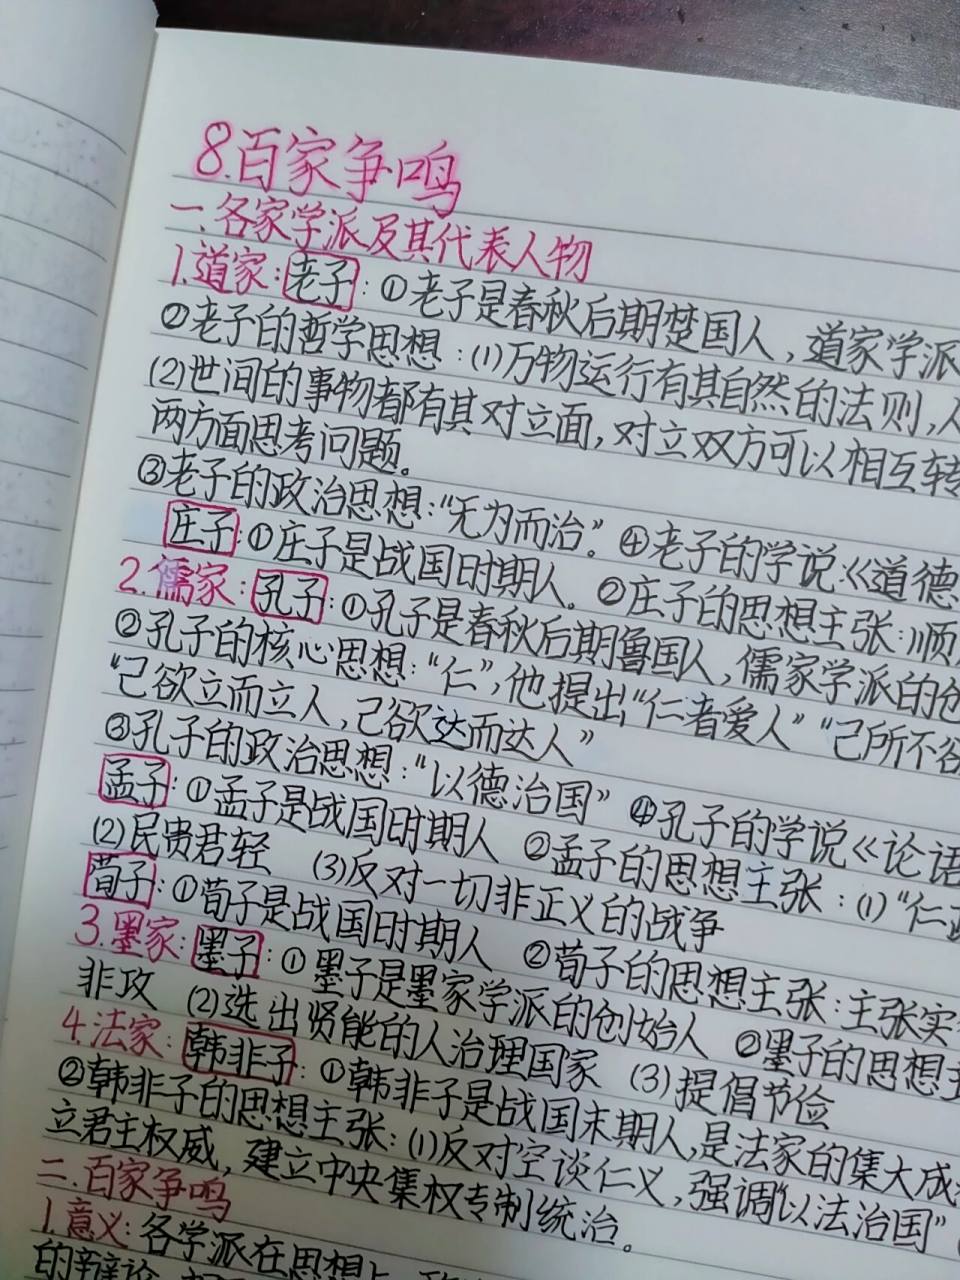 8.百家争鸣
一.各家学派及其代表人物
1.道家:老子:①老子是春秋后期楚国人,道家学派
②老子的哲学思想:(1)万物运行有其自然的法则,人
(2)世间的事物都有其对立面,对立双方可以相互转
两方面思考问题。
③老子的政治思想:“无为而治”。④老子的学说:《道德
庄子:①庄子是战国时期人。②庄子的思想主张:顺
2.儒家:孔子:①孔子是春秋后期鲁国人,儒家学派的创
②孔子的核心思想:“仁”,他提出“仁者爱人”“己所不欲
“己欲立而立人,己欲达而达人”
③孔子的政治思想:“以德治国” ④孔子的学说《论语
孟子:①孟子是战国时期人 ②孟子的思想主张:(1)“仁政
(2)民贵君轻 (3)反对一切非正义的战争
荀子:①荀子是战国时期人 ②荀子的思想主张:主张实
3.墨家:墨子:①墨子是墨家学派的创始人 ②墨子的思想主
非攻 (2)选出贤能的人治理国家 (3)提倡节俭
4.法家:韩非子:①韩非子是战国末期人,是法家的集大成
②韩非子的思想主张:(1)反对空谈仁义,强调“以法治国”
立君主权威,建立中央集权专制统治。
二.百家争鸣
1.意义:各学派在思想上
的辩论